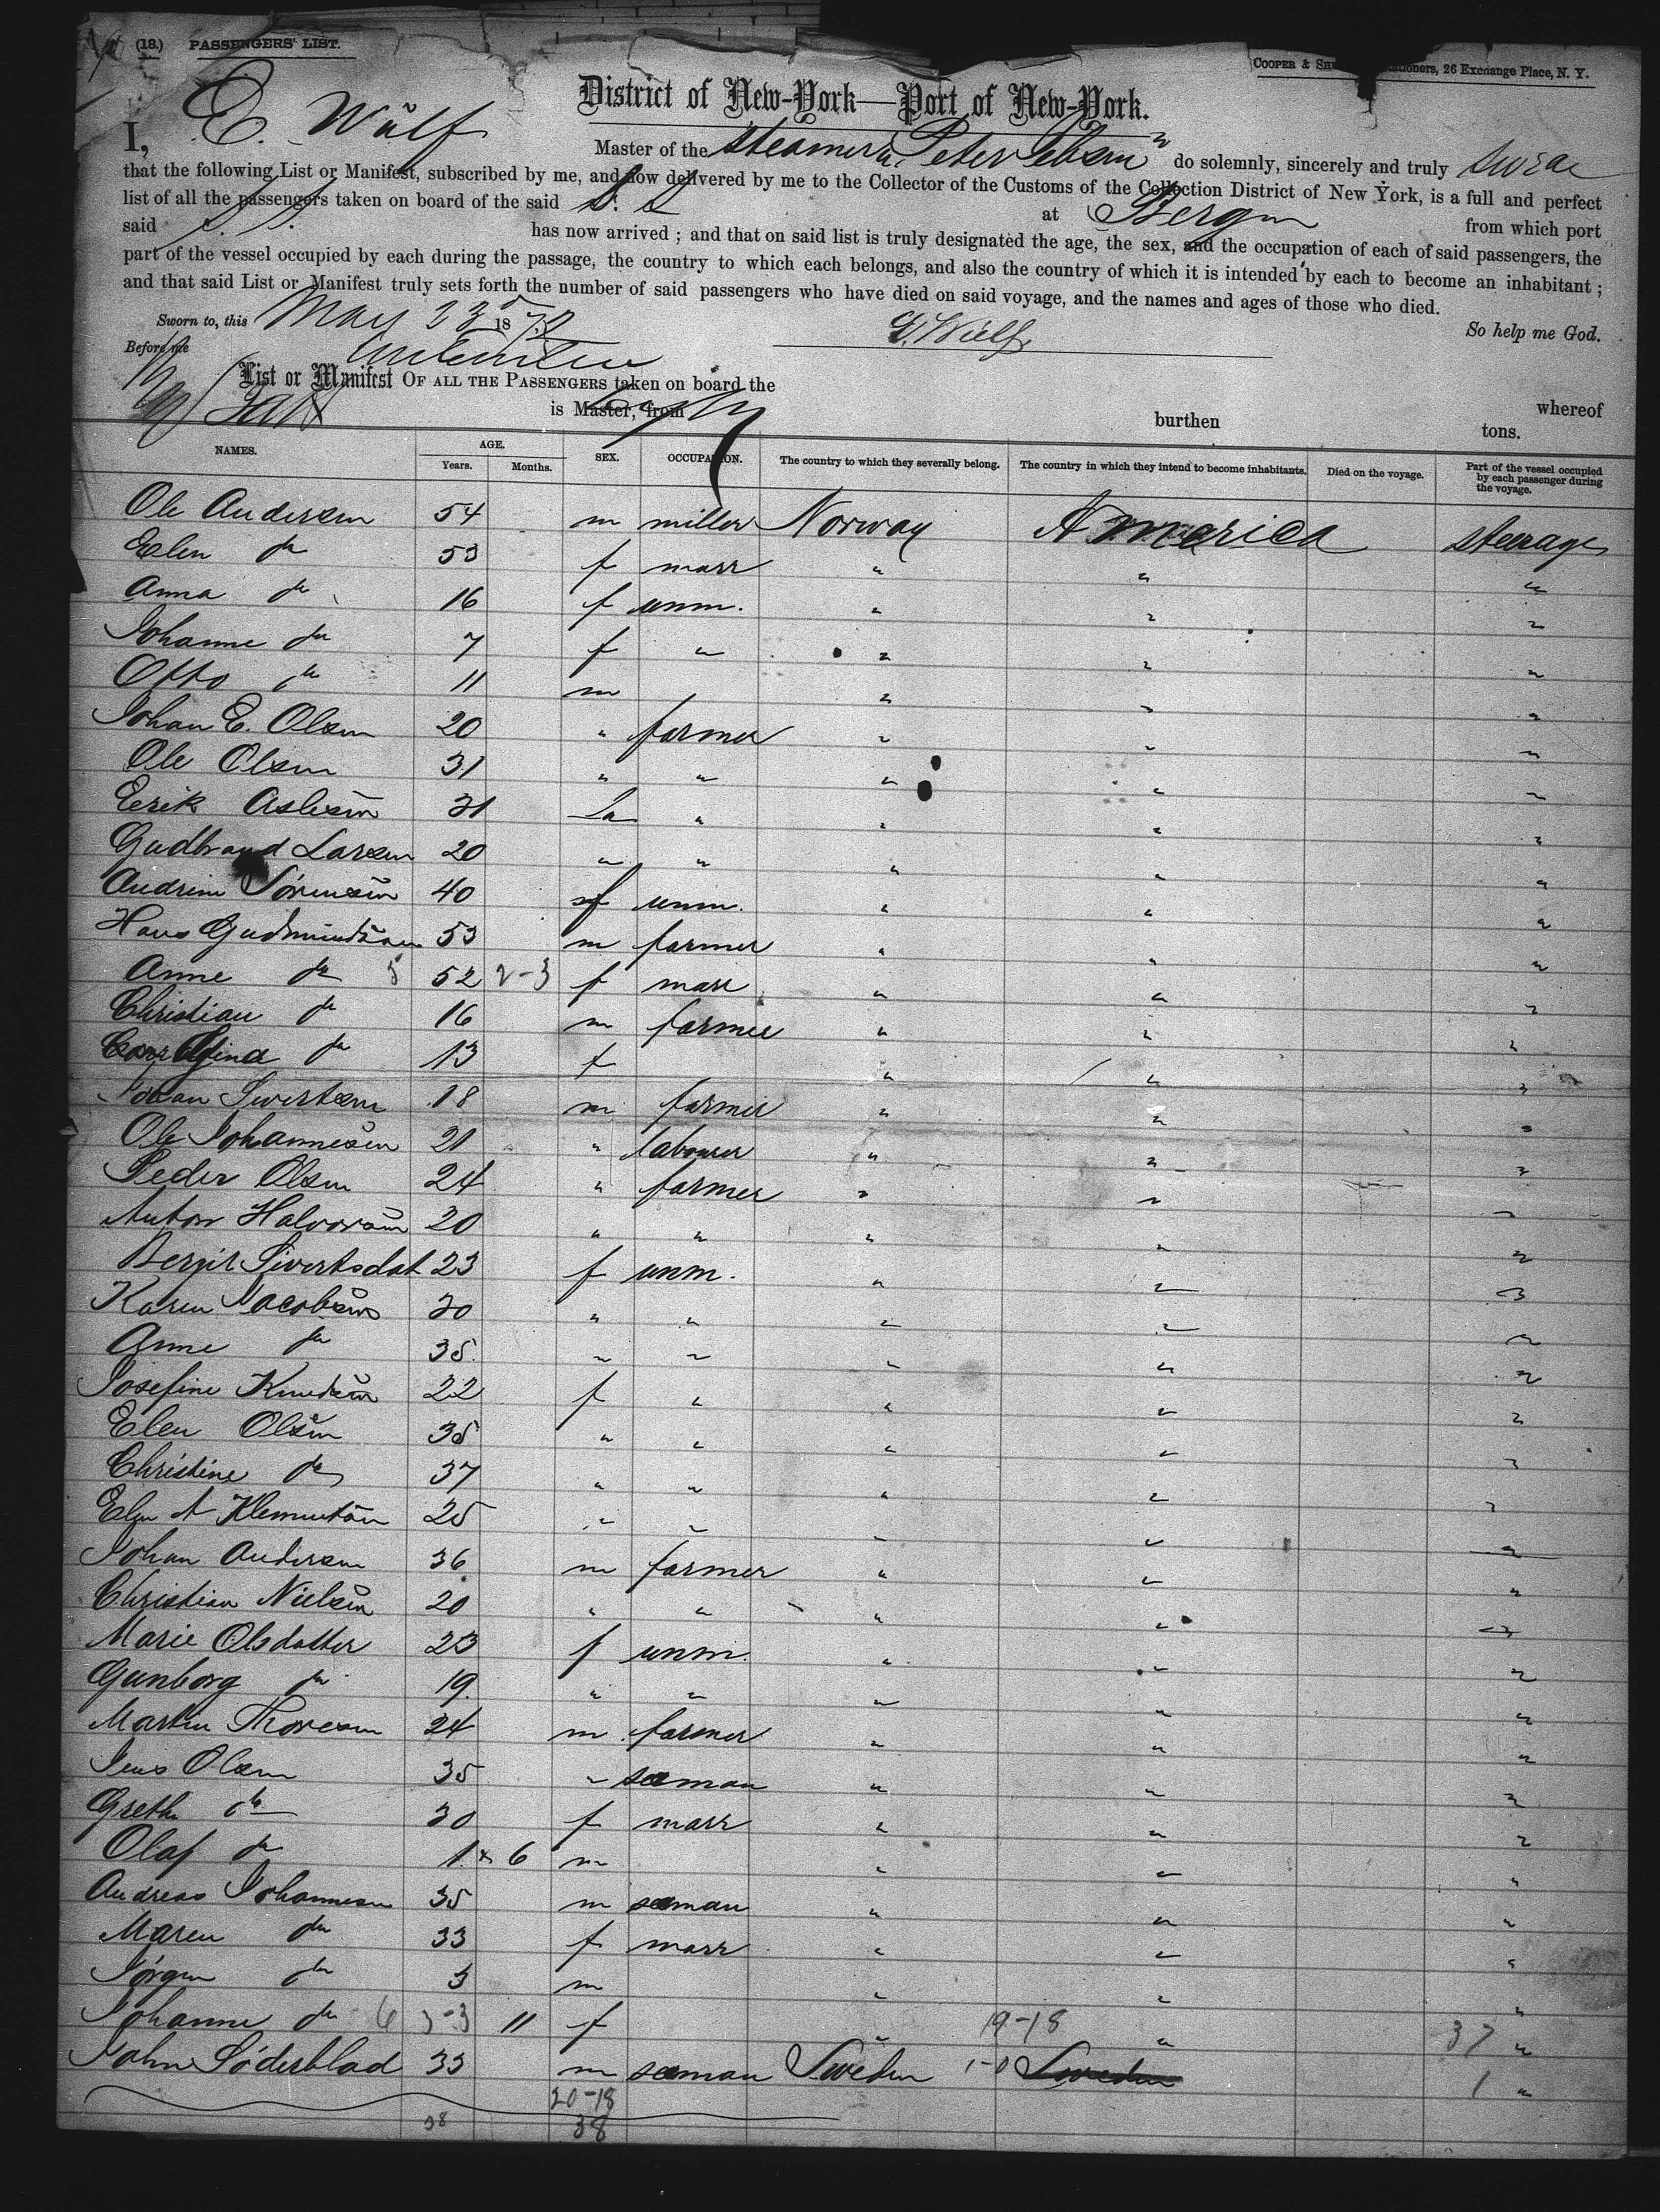 (18.) PASSENGERS' LIST.
COOPER & 26 Exchange Place, N. Y.
District of New-York—Port of New-York.
I, E. Wulf Master of the steamer „Peter Jebsen" do solemnly, sincerely and truly swear
that the following List or Manifest, subscribed by me, and now delivered by me to the Collector of the Customs of the Collection District of New York, is a full and perfect
list of all the passengers taken on board of the said S. S. at Bergen from which port
said S. S. has now arrived ; and that on said list is truly designated the age, the sex, and the occupation of each of said passengers, the
part of the vessel occupied by each during the passage, the country to which each belongs, and also the country of which it is intended by each to become an inhabitant ;
and that said List or Manifest truly sets forth the number of said passengers who have died on said voyage, and the names and ages of those who died.
Sworn to, this May 23d 1872 E. Wulf So help me God.
Before me
List or Manifest OF ALL THE PASSENGERS taken on board the whereof
is Master, from burthen tons.
NAMES. AGE. Years. Months. SEX. OCCUPATION. The country to which they severally belong. The country in which they intend to become inhabitants. Died on the voyage. Part of the vessel occupied by each passenger during the voyage.
Ole Andersen 54 m miller Norway America steerage
Elen do 53 f marr " " "
Anna do 16 f unm. " " "
Johanne do 7 f " " " "
Otto do 11 m " " "
Johan E. Olsen 20 " farmer " " "
Ole Olsen 31 " " " " "
Eerik Aslesen 31 " " " "
Gudbrand Larsen 20 " " " " "
Andrine Sörensen 40 f unm. " " "
Hans Gudmundsen 53 m farmer " " "
Anne do 5 52 2-3 f marr " " "
Christian do 16 m farmer " " "
do 13 f " " "
Johan Sivertsen 18 m farmer " " "
Ole Johannesen 21 " labourer " " "
Peder Olsen 24 " farmer " " "
Anton Halvorsen 20 " " " " "
Bergit Sivertsdat 23 f unm. " " "
Karen Jacobsens 30 " " " " "
Anne do 35. " " " " "
Josefine Knudsen 22 f " " " "
Elen Olsen 35 " " " " "
Christine do 37 " " " " "
Elen A Klemmetsen 25 " " " " "
Johan Andersen 36 m farmer " " "
Christian Nielsen 20 " " " " "
Marie Olsdatter 23 f unm. " " "
Gunborg do 19. " " " " "
Martin Thoresen 24 m farmer " " "
Jens Olsen 35 " seaman " " "
Grethe do 30 f marr " " "
Olaf do 1 6 m " " "
Andreas Johannesen 35 m seaman " " "
Maren do 33 f marr " " "
Jörgen do 3 m " " "
Johanne do 6 3-3 11 f " 19-18 " 37 "
John Söderblad 33 m seaman Sweden 1-0 Sweden 1 "
20-18
38 38